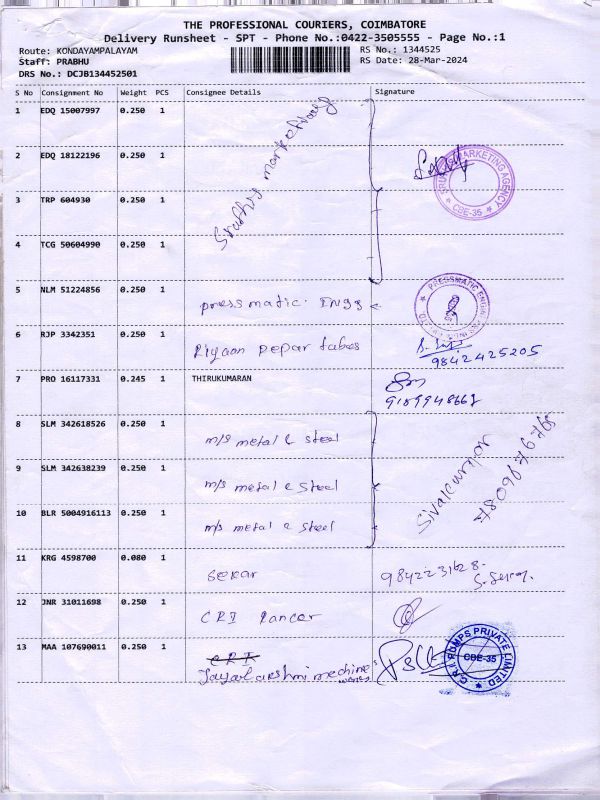 THE PROFESSIONAL COURIERS, COIMBATORE
Delivery Runsheet - SPT - Phone No.:0422-3505555 - Page No.:1
Route: KONDAYAMPALAYAM
Staff: PRABHU
DRS No.: DCJB134452501
RS No.: 1344525
RS Date: 28-Mar-2024
S No Consignment No Weight PCS Consignee Details Signature
1 EDQ 15007997 0.250 1
marketing
2 EDQ 18122196 0.250 1
MARKETING AGENCY
CBE-35
3 TRP 604930 0.250 1
4 TCG 50604990 0.250 1
5 NLM 51224856 0.250 1 pressmatic. Engs
PRESSMATIC
6 RJP 3342351 0.250 1 Riyaan pepar tubes
9842425205
7 PRO 16117331 0.245 1 THIRUKUMARAN
8 SLM 342618526 0.250 1 m/s metal & steel
9 SLM 342638239 0.250 1 m/s metal & steel
10 BLR 5004916113 0.250 1 m/s metal & steel
11 KRG 4598700 0.080 1 sekar
12 JNR 31011698 0.250 1 CRI
13 MAA 107690011 0.250 1 CRI
Jayalakshmi mechine
C.R.I. PUMPS PRIVATE LIMITED
CBE-35